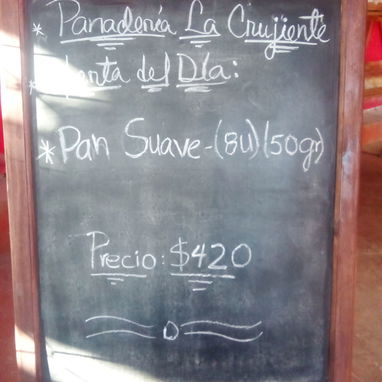 * Panadería La Crujiente
* del Día:
* Pan Suave - (8U) (50gr)
Precio: $420